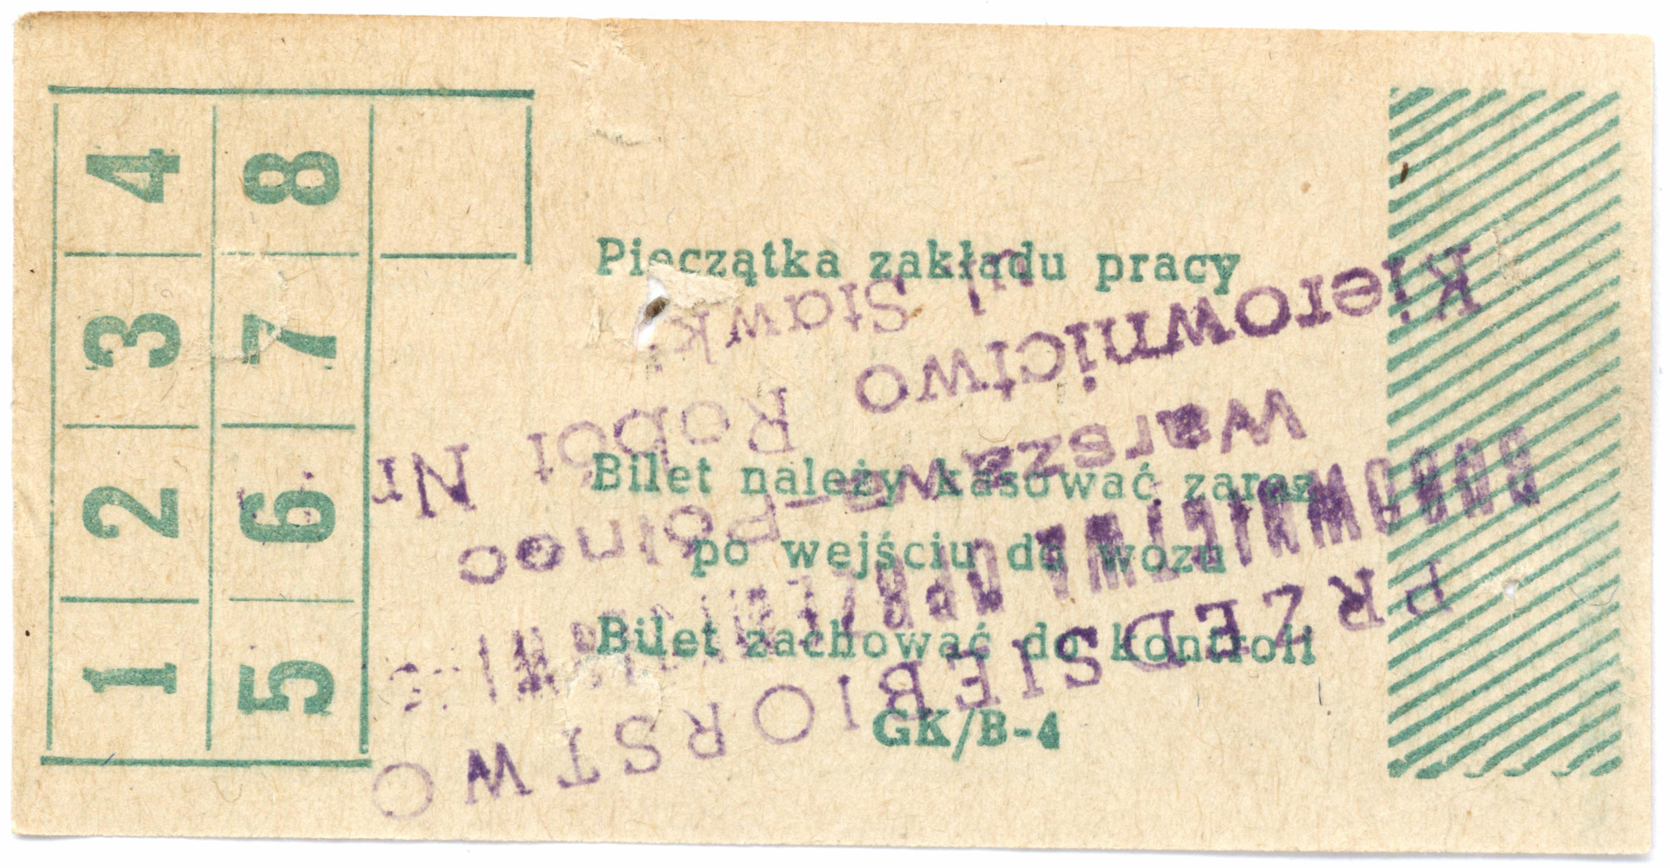 4 8
3 7
2 6
1 5
Pieczątka zakładu pracy
Bilet należy kasować zaraz
po wejściu do wozu
Bilet zachować do kontroli
GK/B-4
PRZEDSIĘBIORSTWO
BUDOWNICTWA UPRZEMYSŁOWIONEGO
Warszawa-Północ
Kierownictwo Robót Nr
ul Stawki